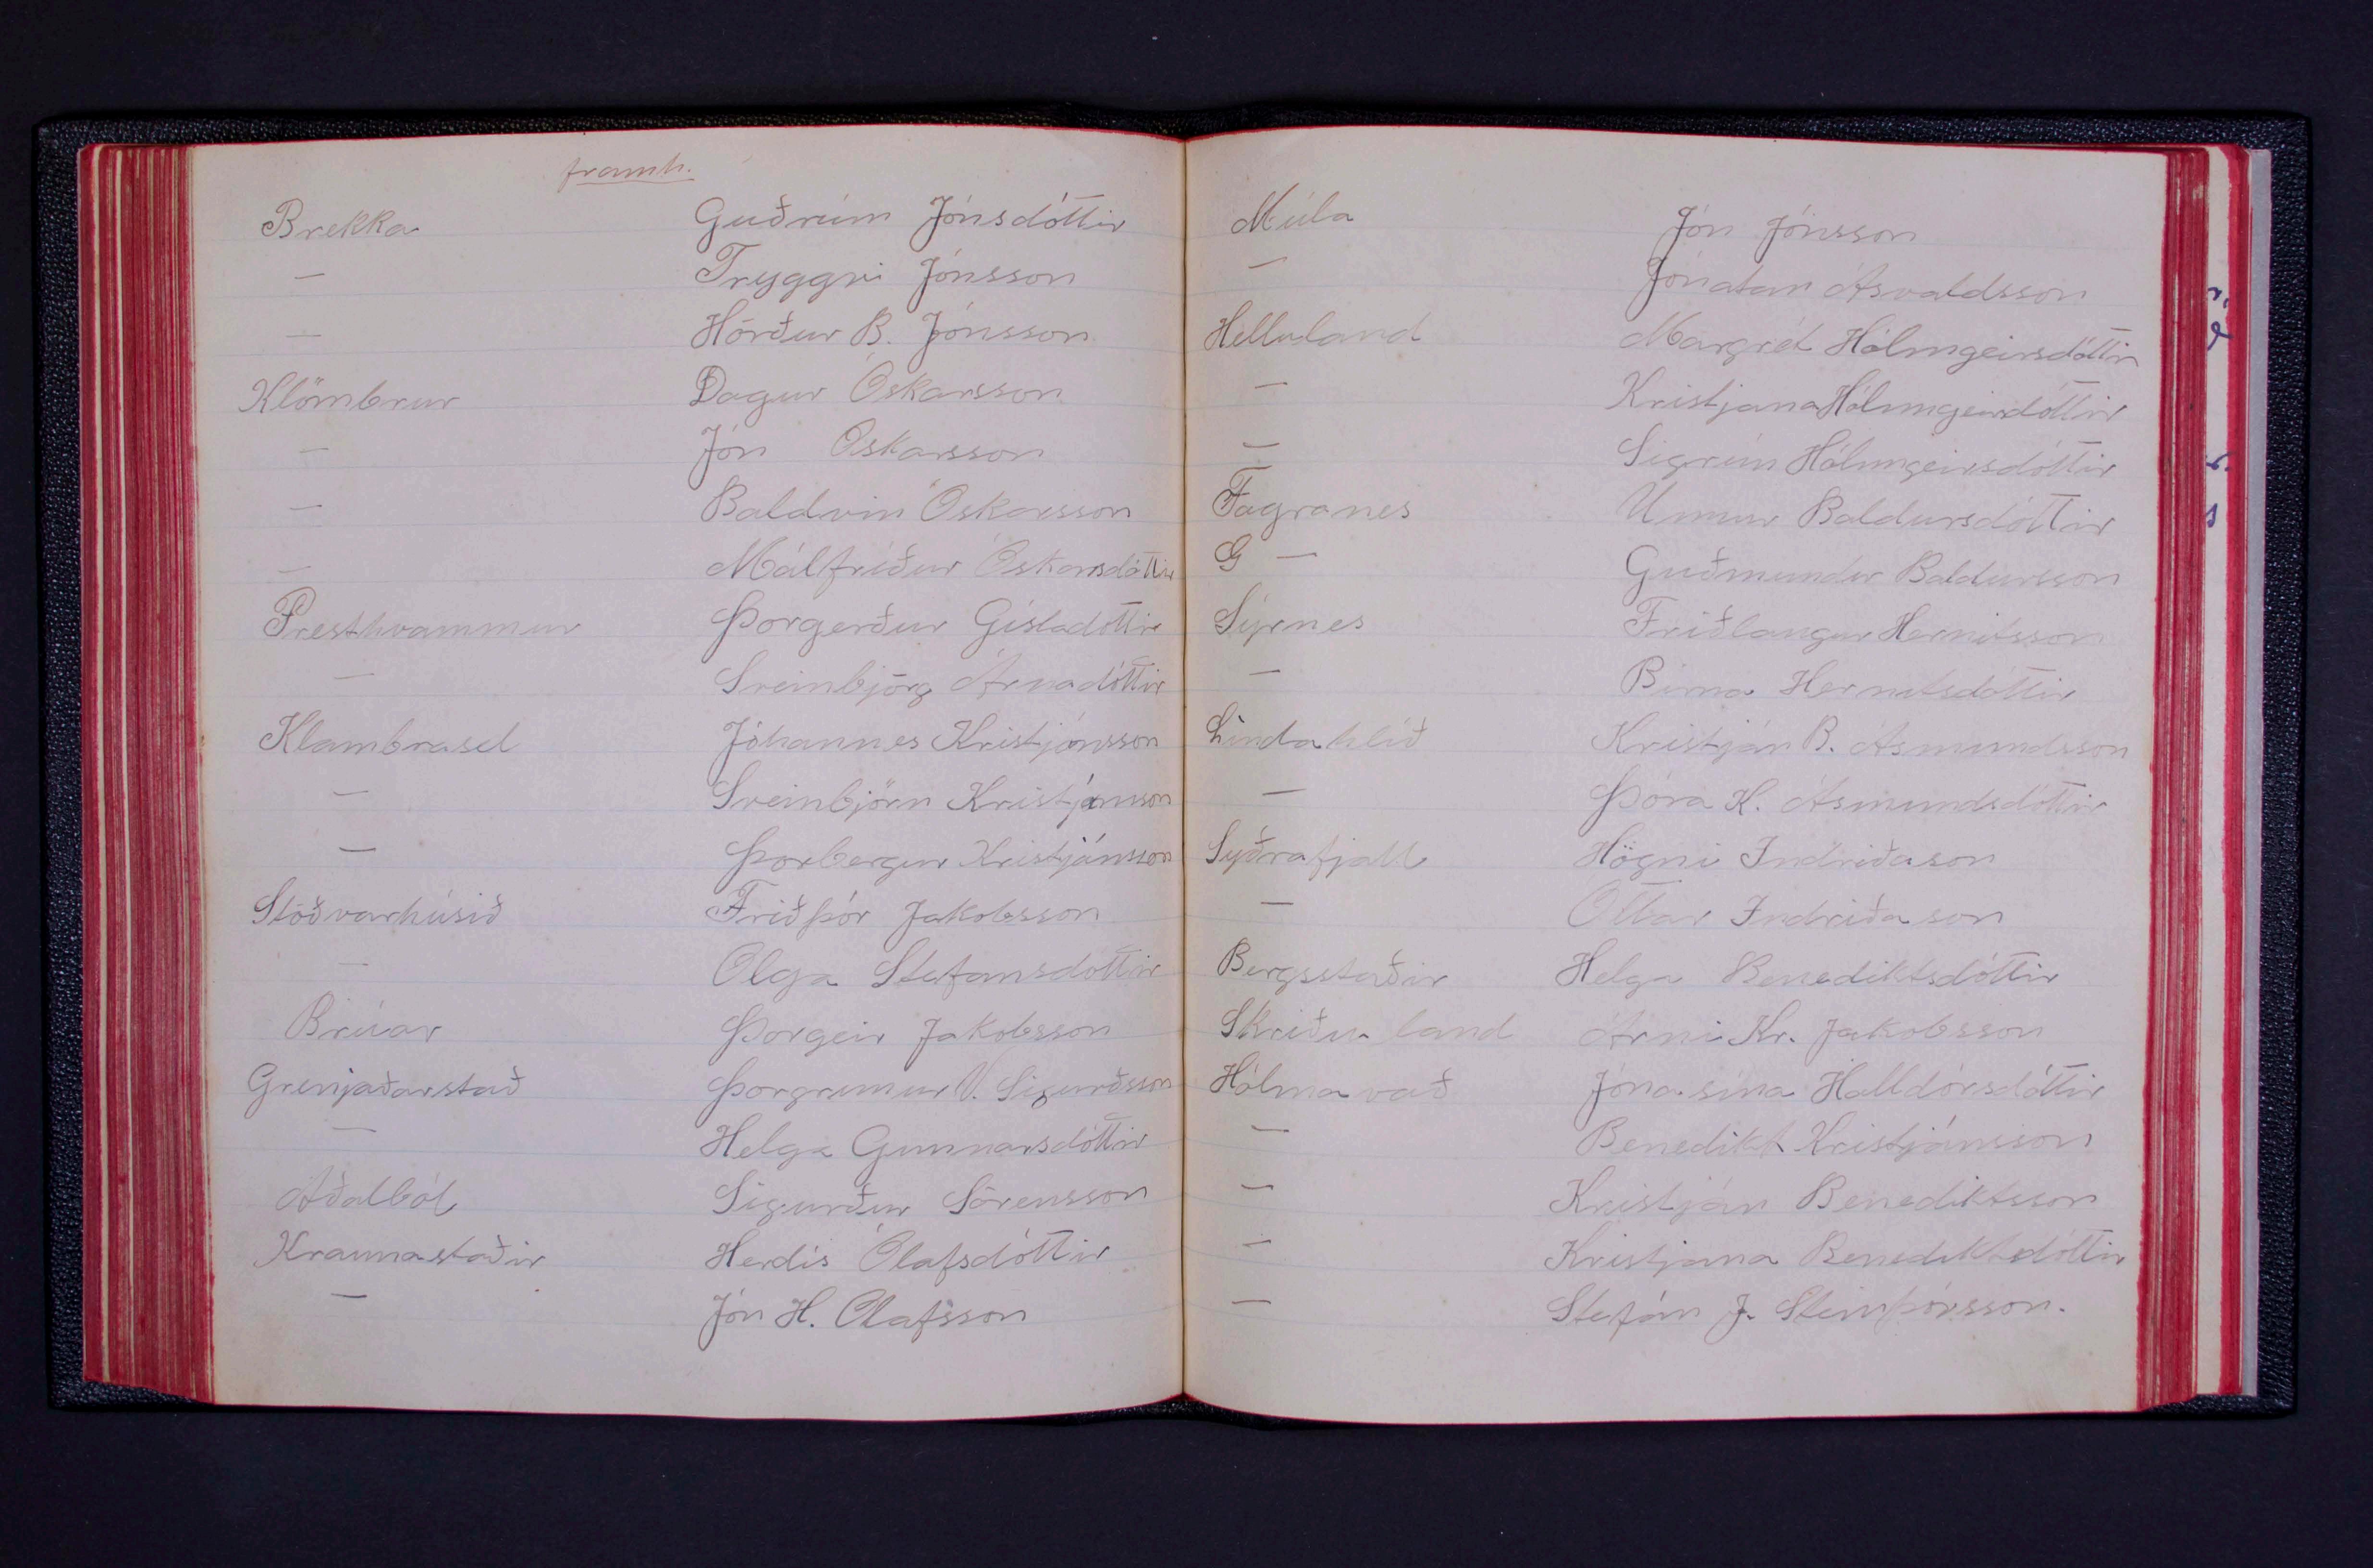 framh.
Brekka Guðrún Jónsdóttir
— Tryggvi Jónsson
— Hörður B. Jónsson
Klömbrur Dagur Óskarsson
— Jón Óskarsson
— Baldvin Óskarsson
— Málfríður Óskarsdóttir
Presthvammur Þorgerður Gísladóttir
— Sveinbjörg Árnadóttir
Klambrasel Jóhannes Kristjánsson
— Sveinbjörn Kristjánsson
— Þorbergur Kristjánsson
Stöðvarhúsið Friðþór Jakobsson
— Olga Stefansdóttir
Brúar Þorgeir Jakobsson
Grenjaðarstað Þorgrímur V. Sigurðsson
— Helga Gunnarsdóttir
Aðalból Sigurður Sörensson
Kraunastaðir Herdís Ólafsdóttir
— Jón H. Ólafsson
Múla Jón Jónsson
— Jónatan Ásvaldsson
Helluland Margrét Hólmgeirsdóttir
— Kristjana Hólmgeirsdóttir
— Sigrún Hólmgeirsdóttir
Fagranes Unnur Baldursdóttir
G — Guðmundur Baldursson
Sýrnes Friðlaugur Hernitsson
— Birna Hernitsdóttir
Lindahlíð Kristján B. Ásmundsson
— Þóra K. Ásmundsdóttir
Syðrafjall Högni Indriðason
— Óttar Indriðason
Bergsstaðir Helga Benediktsdóttir
Skriðuland Árni Kr. Jakobsson
Hólmavað Jónasína Halldórsdóttir
— Benedikt Kristjánsson
— Kristján Benediktsson
— Kristjana Benediktsdóttir
— Stefán J. Steinþórsson.